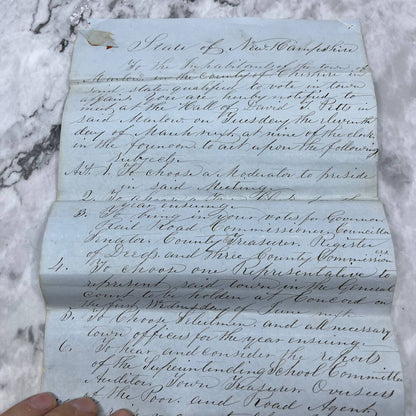 State of New Hampshire
To the Inhabitants of the town of
Marlow in the County of Cheshire in
said state qualified to vote in town
affairs. You are hereby notified to
meet at the Hall of David J. Potts in
said Marlow on Tuesday the eleventh
day of March next at nine of the clock
in the forenoon to act upon the following
Subjects
Art. 1. To choose a Moderator to preside
in said Meeting
2. To choose a Town Clerk
year ensuing
3. To bring in your votes for Governor
Rail Road Commissioner Councillor
Senator County Treasurer Register
of Deeds and three County Commissioners
4. To choose one Representative to
represent said town in the General
Court to be holden at Concord on
the first Wednesday of June next
5. To Choose Selectmen and all necessary
town officers for the year ensuing
6. To hear and consider the reports
of the Superintending School Committee
Auditors Town Treasurer Overseers
of the Poor and Road Agent